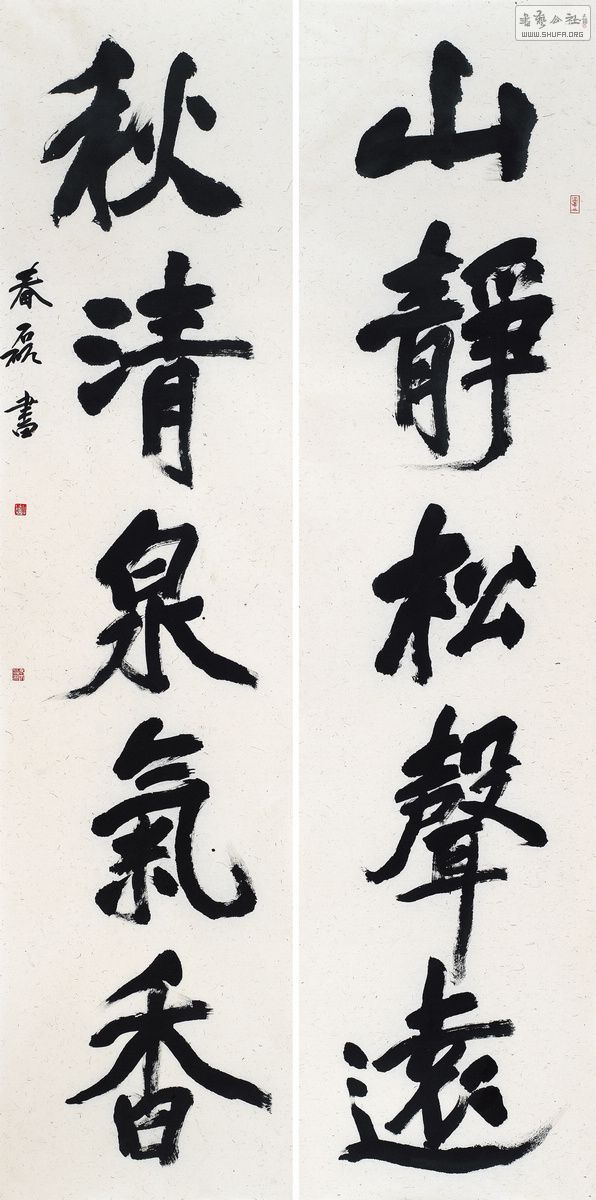 山靜松聲遠
秋清泉氣香
春磊書
書藝公社
WWW.SHUFA.ORG